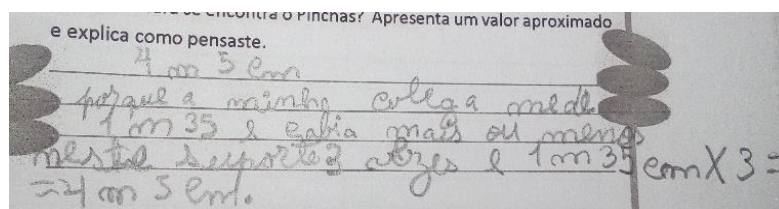 se encontra o Pinchas? Apresenta um valor aproximado
e explica como pensaste.
4 m 5 cm
porque a minha colega mede
1 m 35 e cabia mais ou menos
neste suporte 3 vezes e 1 m 35 cm X 3 =
= 4 m 5 cm.